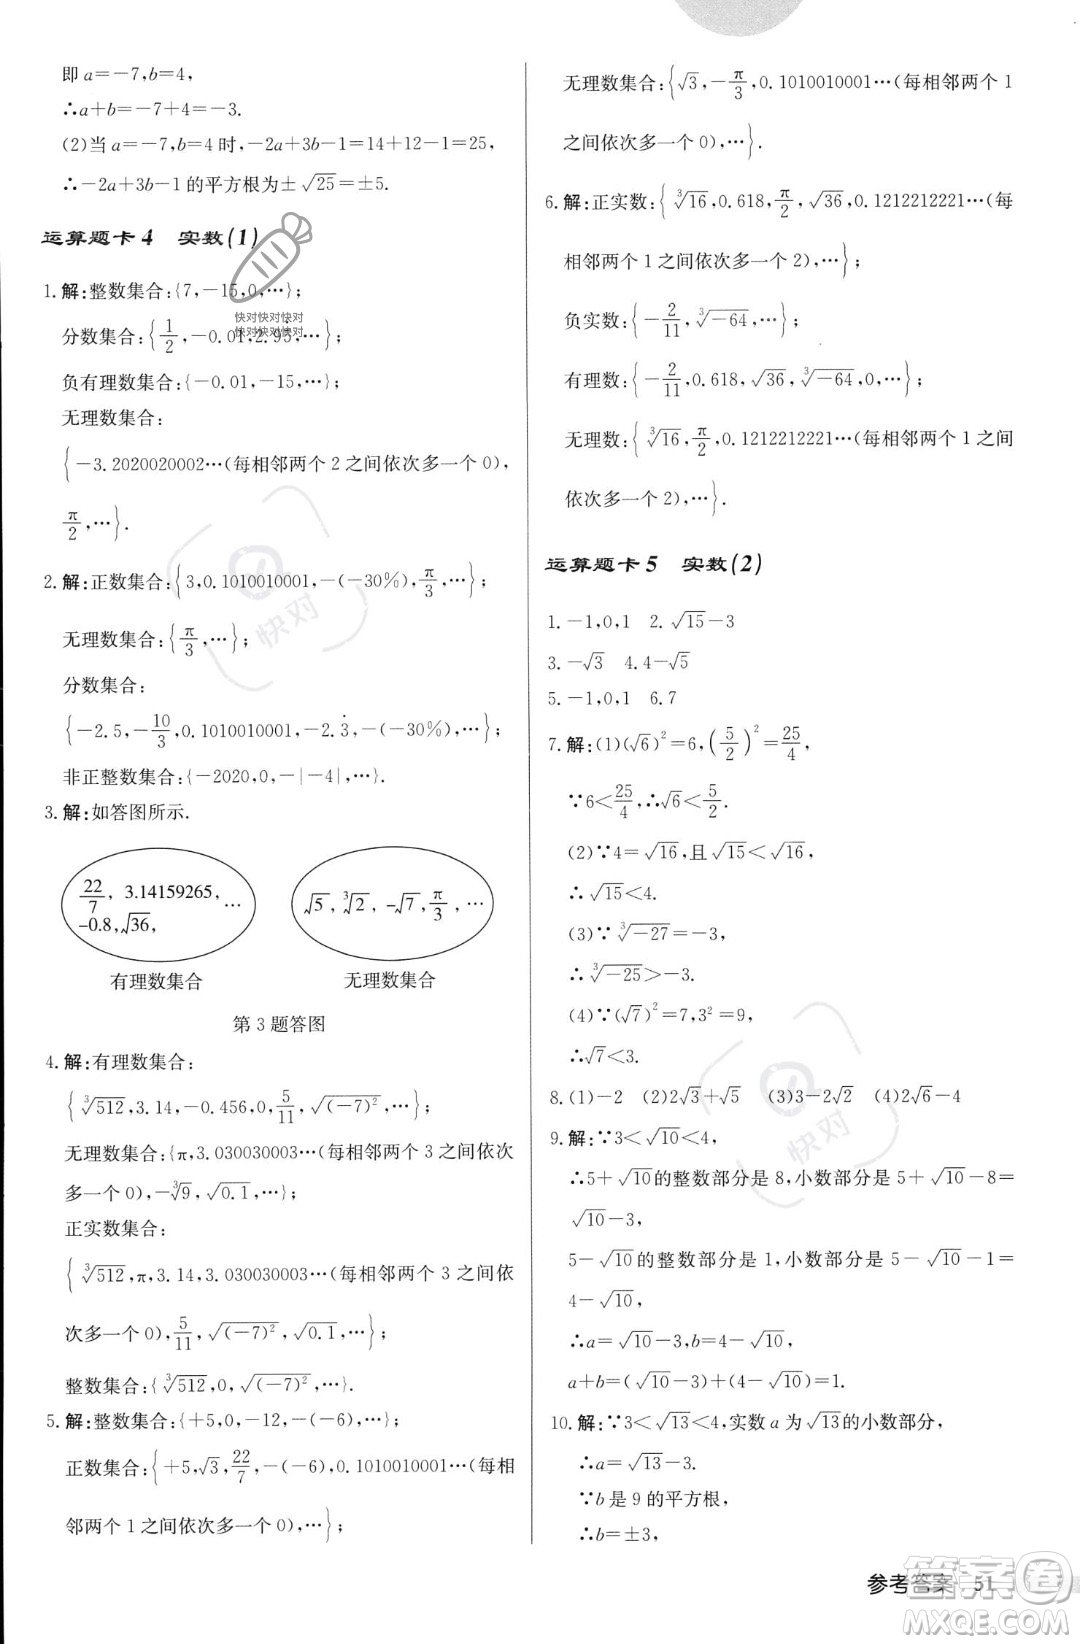 即a=-7,b=4,
∴a+b=-7+4=-3.
(2)当a=-7,b=4时,-2a+3b-1=14+12-1=25,
∴-2a+3b-1的平方根为±√25=±5.
运算题卡4 实数(1)
1.解:整数集合:{7,-15,0,…};
快对快对快对
快对快对快对
分数集合:{1/2,-0.01,2.95,…};
负有理数集合:{-0.01,-15,…};
无理数集合:
{-3.2020020002…(每相邻两个2之间依次多一个0),
π/2,…}.
2.解:正数集合:{3,0.1010010001,-(-30%),π/3,…};
无理数集合:{π/3,…};
分数集合:
{-2.5,-10/3,0.1010010001,-2.3̇,-(-30%),…};
非正整数集合:{-2020,0,-|-4|,…}.
3.解:如答图所示.
22/7, 3.14159265, …
-0.8,√36,
√5,∛2,-√7,π/3,…
有理数集合 无理数集合
第3题答图
4.解:有理数集合:
{∛512,3.14,-0.456,0,5/11,√(-7)²,…};
无理数集合:{π,3.030030003…(每相邻两个3之间依次
多一个0),-∛9,√0.1,…};
正实数集合:
{∛512,π,3.14,3.030030003…(每相邻两个3之间依
次多一个0),5/11,√(-7)²,√0.1,…};
整数集合:{∛512,0,√(-7)²,…}.
5.解:整数集合:{+5,0,-12,-(-6),…};
正数集合:{+5,√3,22/7,-(-6),0.1010010001…(每相
邻两个1之间依次多一个0),…};
无理数集合:{√3,-π/3,0.1010010001…(每相邻两个1
之间依次多一个0),…}.
6.解:正实数:{∛16,0.618,π/2,√36,0.1212212221…(每
相邻两个1之间依次多一个2),…};
负实数:{-2/11,∛-64,…};
有理数:{-2/11,0.618,√36,∛-64,0,…};
无理数:{∛16,π/2,0.1212212221…(每相邻两个1之间
依次多一个2),…}.
运算题卡5 实数(2)
1.-1,0,1 2.√15-3
3.-√3 4.4-√5
5.-1,0,1 6.7
7.解:(1)(√6)²=6,(5/2)²=25/4,
∵6<25/4,∴√6<5/2.
(2)∵4=√16,且√15<√16,
∴√15<4.
(3)∵∛-27=-3,
∴∛-25>-3.
(4)∵(√7)²=7,3²=9,
∴√7<3.
8.(1)-2 (2)2√3+√5 (3)3-2√2 (4)2√6-4
9.解:∵3<√10<4,
∴5+√10的整数部分是8,小数部分是5+√10-8=
√10-3,
5-√10的整数部分是1,小数部分是5-√10-1=
4-√10,
∴a=√10-3,b=4-√10,
a+b=(√10-3)+(4-√10)=1.
10.解:∵3<√13<4,实数a为√13的小数部分,
∴a=√13-3.
∵b是9的平方根,
∴b=±3,
参考答案 51
快对
快对
答案圈
MXQE.COM